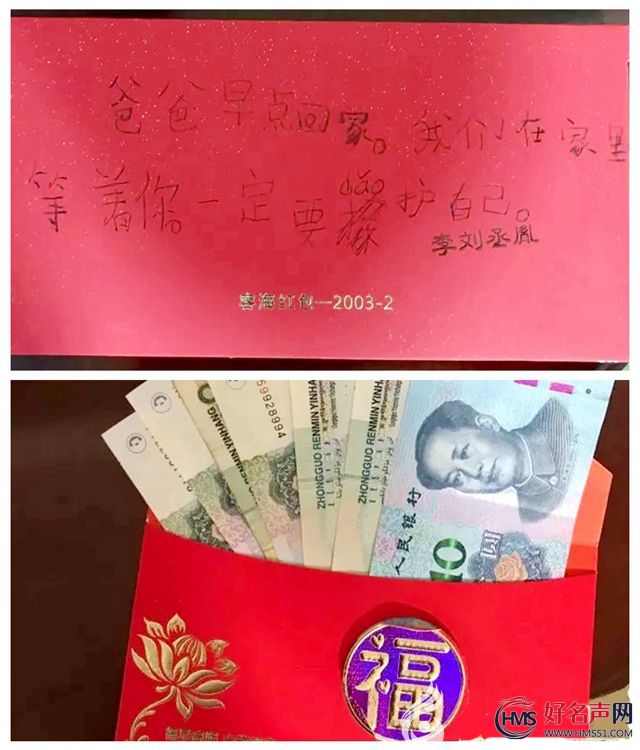 爸爸早点回家。我们在家里
等着你。一定要保护自己。
李刘丞胤
客海红包—2003-2
59928994
RENMIN YINHANG
ZHONGGUO RENMIN YINHANG
ZHONGGUO RENMIN YINHANG
人民银行
10
圆
福
HMS 好名声网
WWW.HMS51.COM